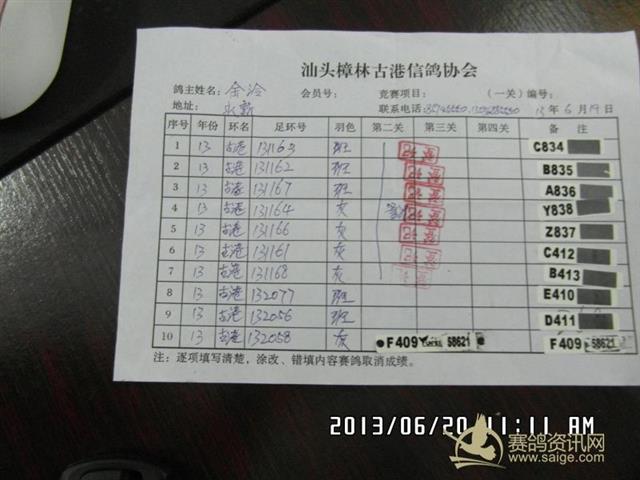 汕头樟林古港信鸽协会
鸽主姓名: 金冷 会员号: 竞赛项目: (一关) 编号:
地址: 联系电话 13年6月19日
序号 年份 环名 足环号 羽色 第二关 第三关 第四关 备注
1 13 古港 131163 班 C834
2 13 古港 131162 班 B835
3 13 古港 131167 班 A836
4 13 古港 131164 灰 Y838
5 13 古港 131166 灰 Z837
6 13 古港 131161 灰 C412
7 13 古港 131168 灰 B413
8 13 古港 132077 班 E410
9 13 古港 132056 班 D411
10 13 古港 132058 灰 F409 58621 F409 58621
注: 逐项填写清楚, 涂改、错填内容赛鸽取消成绩。
2013/06/20 11:11 AM
赛鸽资讯网
www.saige.com